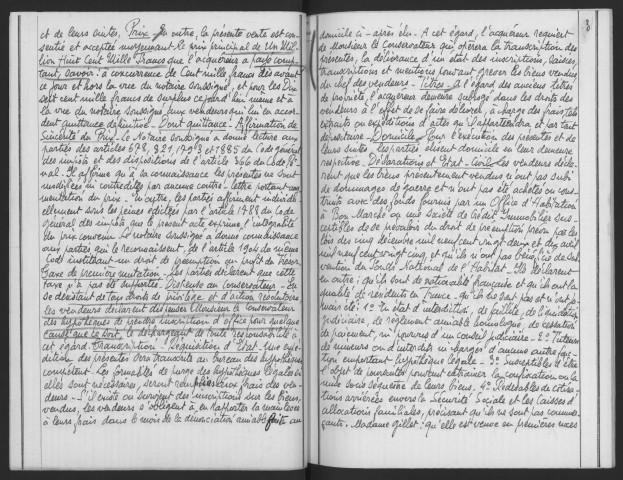 et de leurs suites, Prix. En outre, la présente vente est con-
sentie et acceptée moyennant le prix principal de Un Mil-
lion Huit Cent Mille Francs que l'acquéreur a payé comp-
tant, savoir: à concurrence de Cent mille francs dès avant
ce jour et hors la vue du notaire soussigné, et pour les Dix
sept cent mille francs de surplus ce jourd'hui même et à
la vue du notaire soussigné, aux vendeurs qui lui en accor-
dent quittance définitive. Dont quittance. Affirmation de
Sincérité du Prix. Le Notaire soussigné a donné lecture aux
parties des articles 678, 321, 1793 et 1885 du Code général
des impôts et des dispositions de l'article 366 du Code Pé-
nal. Il affirme qu'à sa connaissance les présentes ne sont
modifiées ni contredites par aucune contre-lettre portant aug-
mentation du prix. En outre, les parties affirment individu-
ellement sous les peines édictées par l'article 1788 du Code
général des impôts que le présent acte exprime l'intégralité
du prix convenu. Le notaire soussigné a donné connaissance
aux parties qui le reconnaissent, de l'article 1904 du même
Code instituant un droit de préemption au profit du Trésor.
Taxe de première mutation. Les parties déclarent que cette
taxe n'a pas été supportée. Dispense au Conservateur. En
se désistant de tous droits de privilège et d'action résolutoire
les vendeurs déclarent dispenser Monsieur le Conservateur
des hypothèques de prendre inscription d'office pour quelque
cause que ce soit, le déchargeant de toute responsabilité à
cet égard. Transcription. Réquisition d'Etat. Une expé-
dition des présentes sera transcrite au bureau des hypothèques
compétent. Les formalités de purge des hypothèques légales si
elles sont nécessaires, seront remplies aux frais des ven-
deurs. S'il existe ou survient des inscriptions sur les biens
vendus, les vendeurs s'obligent à en rapporter la mainlevée
à leurs frais dans le mois de la dénonciation amiable faite au
3
domicile ci-après élu. A cet égard, l'acquéreur requiert
de Monsieur le Conservateur qui opérera la transcription des
présentes, la délivrance d'un état des inscriptions, saisies,
transcriptions et mentions pouvant grever les biens vendus
du chef des vendeurs. Titres. A l'égard des anciens titres
de propriété l'acquéreur demeure subrogé dans les droits des
vendeurs à l'effet de se faire délivrer, à charge des frais, tels
extraits ou expéditions d'actes qu'il appartiendra et par tout
dépositaire. Domicile. Pour l'exécution des présentes et de
leurs suites, les parties élisent domicile en leur demeure
respective. Déclarations et Etat-Civil. Les vendeurs décla-
rent que les biens présentement vendus n'ont pas subi
de dommages de guerre et n'ont pas été achetés ou cons-
truits avec des fonds fournis par un Office d'Habitations
à Bon Marché ou une Société de Crédit Immobilier sus-
ceptibles de se prévaloir du droit de préemption prévu par les
lois des cinq décembre mil neuf cent vingt deux et dix août
mil neuf cent vingt cinq, et qu'ils n'ont pas bénéficié de Sub-
vention du Fonds National de l'Habitat. Ils déclarent
en outre: qu'ils sont de nationalité française et qu'ils ont la
qualité de résidents en France. Qu'ils ne sont pas et n'ont ja-
mais été: 1° En état d'interdiction, de faillite, de liquidation
judiciaire, de règlement amiable homologué, de cessation
de paiement, ni pourvus d'un conseil judiciaire. 2° Tuteurs
de mineurs ou d'interdits ni chargés d'aucune autre fonc-
tion emportant hypothèque légale. 3° Susceptibles d'être
l'objet de poursuites pouvant entraîner la confiscation ou la
mise sous séquestre de leurs biens. 4° Redevables de cotisa-
tions arriérées envers la Sécurité Sociale et les Caisses d'
allocations familiales, précisant qu'ils ne sont pas commer-
çants. Madame Gillet: qu'elle est veuve en premières noces